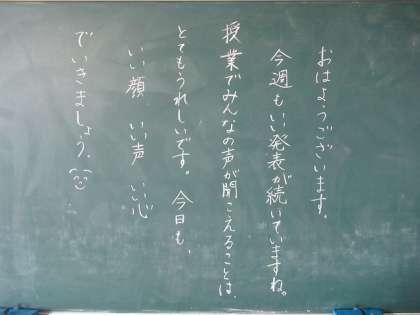 おはようございます。
今週もいい発表が続いていますね。
授業でみんなの声が聞こえることは、
とてもうれしいです。今日も、
いい顔 いい声 いい心
でいきましょう。